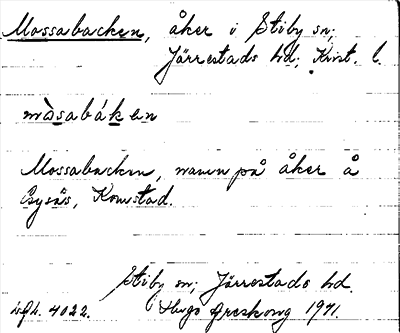 Mossabacken, åker i Stiby sn;
Järrestads hd; Krist. l.
màsabáken
Mossabacken, namn på åker å
Bysäs, Komstad.
Stiby sn; Järrestads hd.
4022. Hugo Areskoug 1971.